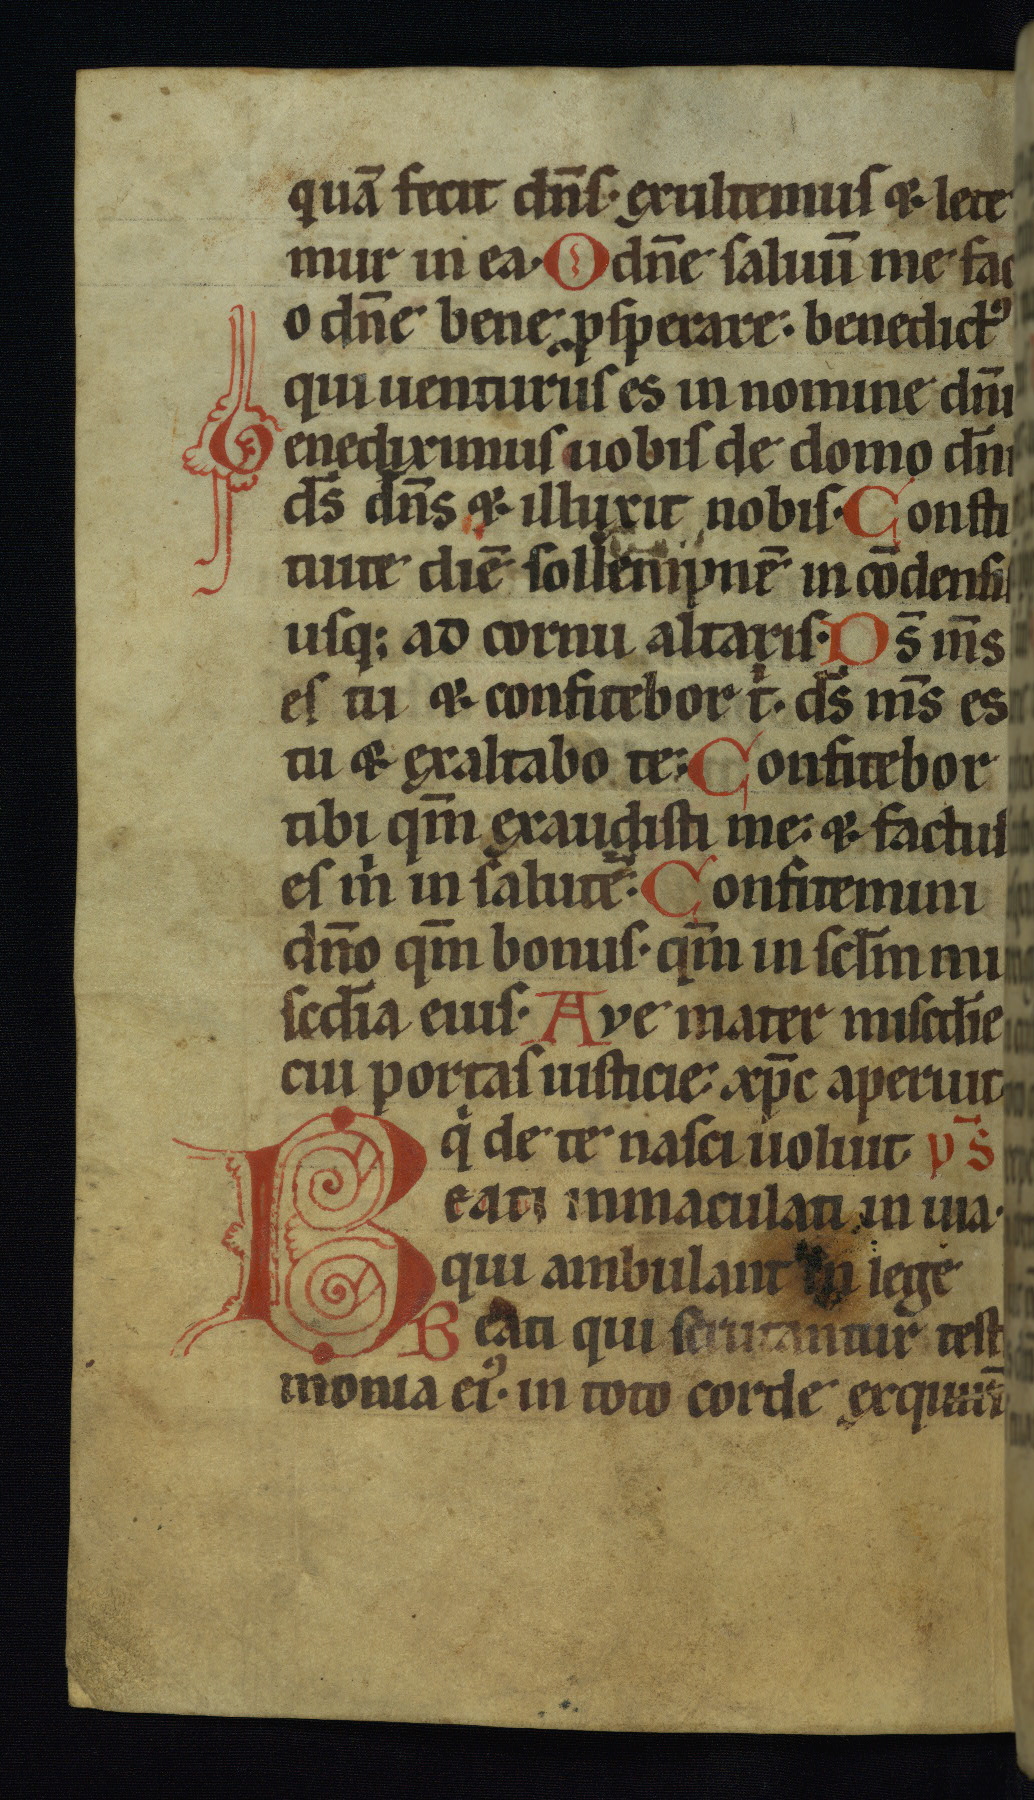 quā fecit dn̄s· exultemus ⁊ lete
mur in ea· O dn̄e saluū me fac
o dn̄e bene ꝓsperare· benedictꝰ
qui uenturus es in nomine dn̄i
Benediximus uobis de domo dn̄i
ds̄ dn̄s ⁊ illuxit nobis· Consti
tuite diē sollempnē in cōdensis
usq; ad cornu altaris· Ds̄ ms̄
es tu ⁊ confitebor t̍· ds̄ ms̄ es
tu ⁊ exaltabo te; Confitebor
tibi qm̄ exaudisti me· ⁊ factus
es m̍ in salutē· Confitemini
dn̄o qm̄ bonus· qm̄ in scl̄m mi
scd̄ia eius· Ave mater miscd̄ie
cui portas iusticie xp̄c aperuit
q̍ de te nasci uoluit ps̄
Beati inmaculati in uia·
qui ambulant in lege
Beati qui scrutantur testi
monia eiꝰ· in toto corde exquirūt